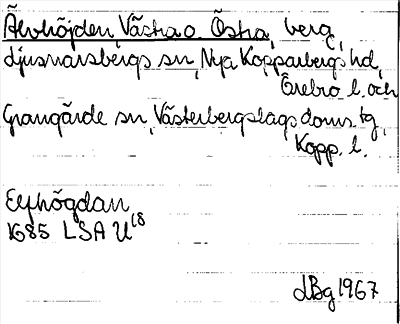 Älvhöjden, Västra o. Östra, berg,
Ljusnarsbergs sn, Nya Kopparbergs hd,
Örebro l. och
Grangärde sn, Västerbergslags doms. tg,
Kopp. l.
Elfhögdan
1685 LSA U18
LBg 1967